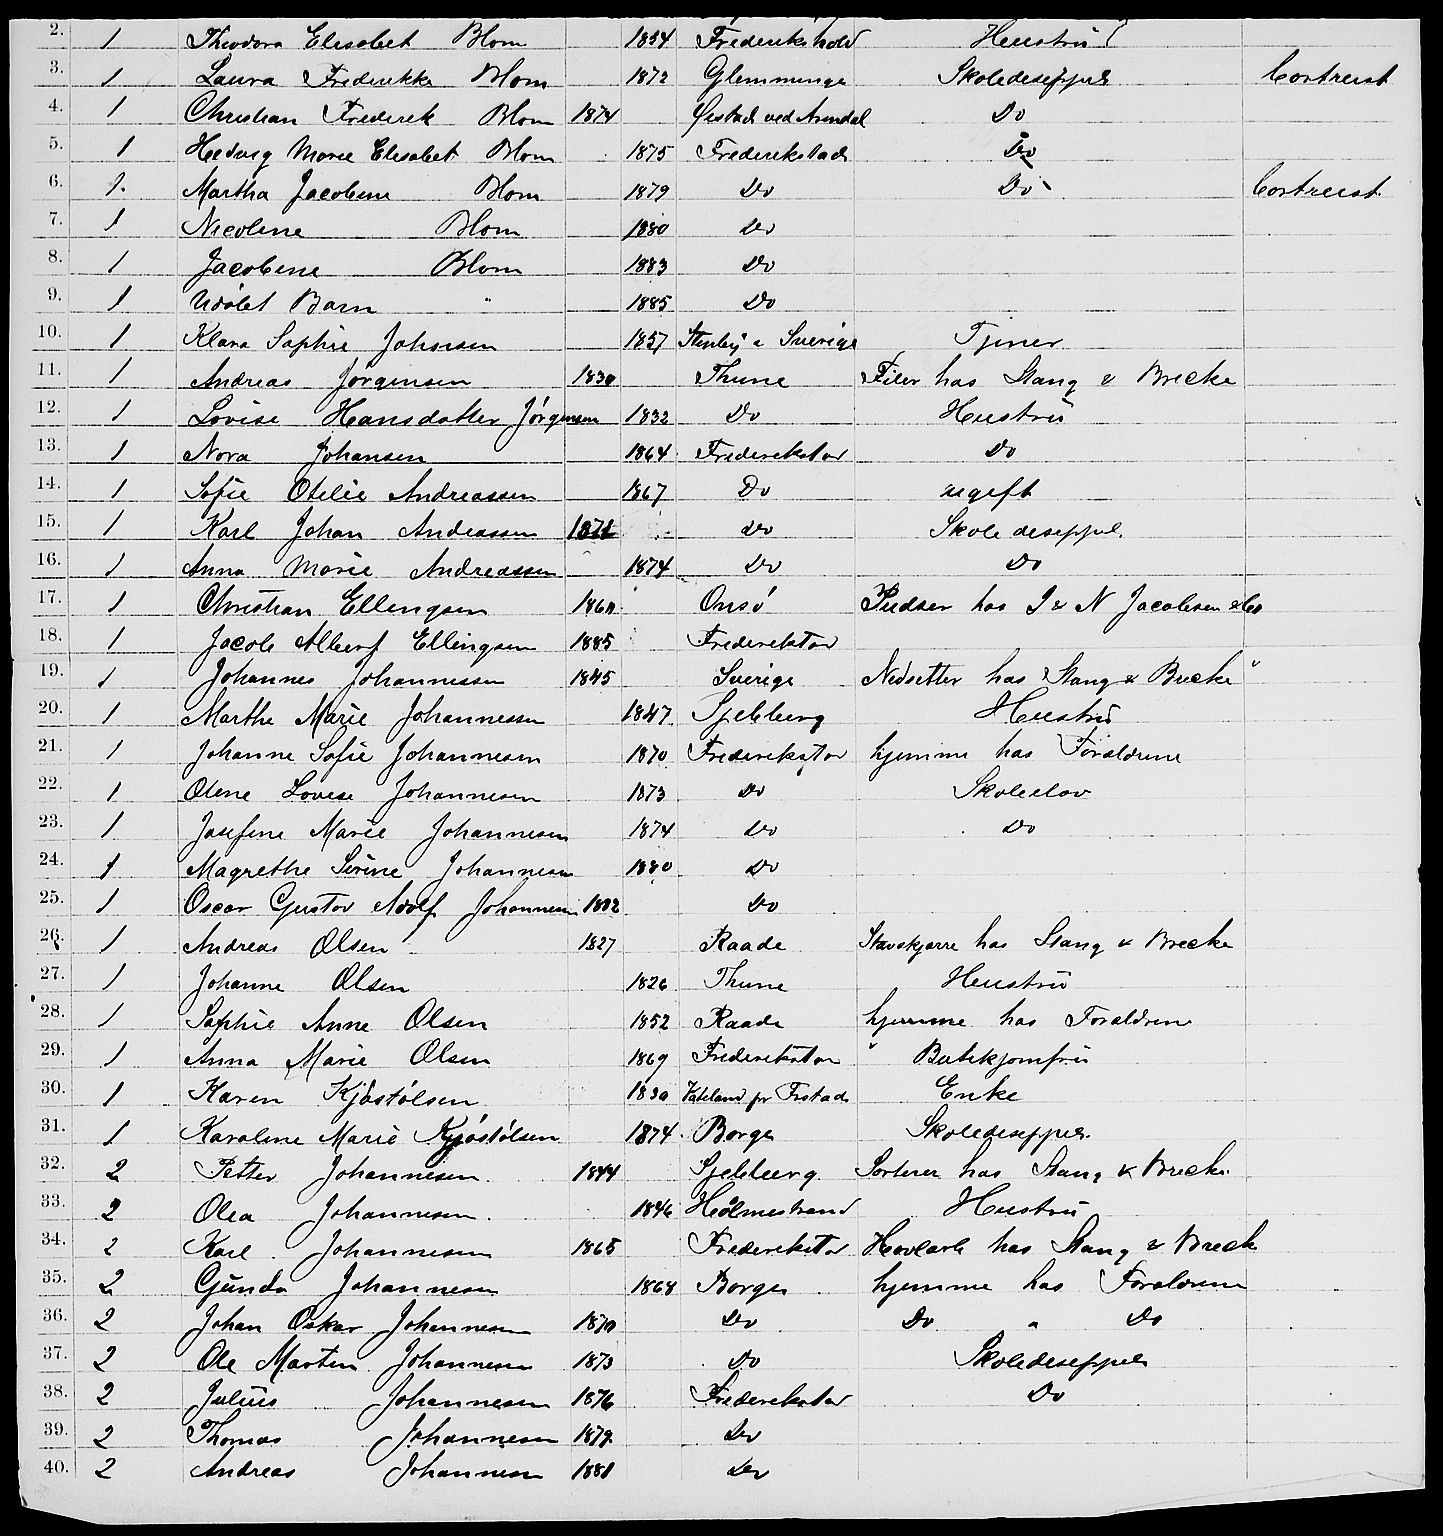 2. 1 Theodora Elisabet Blom 1854 Frederikshald Hustru
3. 1 Laura Frederikke Blom 1872 Glemminge Skoledesippel bortreist
4. 1 Christian Frederik Blom 1874 Øiestad ved Arendal Do
5. 1 Hedvig Marie Elisabet Blom 1875 Frederikstad Do
6. 1 Martha Jacobine Blom 1879 Do Do bortreist
7. 1 Nicoline Blom 1880 Do
8. 1 Jacobine Blom 1883 Do
9. 1 Udöbt Barn " 1885 Do
10. 1 Klara Sophie Johnsen 1857 Sverige Tjener
11. 1 Andreas Jorgensen 1830 Thune Filer hos Stang & Brecke
12. 1 Lovise Hansdatter Jörgensen 1832 Do Hustru
13. 1 Nora Johansen 1864 Frederikstad Do
14. 1 Sofie Otilie Andreassen 1867 Do ugift
15. 1 Karl Johan Andreassen 1871 Do Skoledesippel.
16. 1 Anna Marie Andreassen 1874 Do Do
17. 1 Christian Ellingsen 1860 Onsö Pudser hos J & N Jacobsen & Co
18. 1 Jacob Albert Ellingsen 1885 Frederikstad
19. 1 Johannes Johannessen 1845 Sverige Nedsetter hos Stang & Brecke "
20. 1 Marthe Marie Johannessen 1847 Sjebberg Hustru
21. 1 Johanne Sofie Johannesen 1870 Frederikstad hjemme hos Foraldrene
22. 1 Oline Lovise Johannesen 1873 Do Skoleelav
23. 1 Josefine Marie Johannesen 1874 Do Do
24. 1 Magrethe Sirine Johannesen 1880 Do
25. 1 Oscar Gustav Adolf Johannesen 1882 Do
26. 1 Andreas Olsen 1827 Raade Stavskjærre hos Stang & Brecke
27. 1 Johanne Olsen 1826 Thune Hustru
28. 1 Sophie Anne Olsen 1852 Raade hjemme hos Foraldren
29. 1 Anna Marie Olsen 1869 Frederikstad " Butikjomfru
30. 1 Karen Kjöstölsen 1830 pr Frstad Enke
31. 1 Karoline Marie Kjöstölsen 1874 Borge Skoledesippel.
32. 2 Petter Johannesen 1844 Sjebberg Sorterer hos Stang & Brecke.
33. 2 Olea Johannesen. 1846 Holmestrand Hustru
34. 2 Karl Johannesen 1865 Frederikstad Hovlarb hos Stang & Breck
35. 2 Gunda Johannesen 1868 Borge hjemme hos Foraldrene
36. 2 Johan Oskar Johannesen 1870 Do Do " Do
37. 2 Ole Martin Johannesen 1873 Do Skoledesippel
38. 2 Julius Johannesen 1876 Frederikstad Do
39. 2 Thomas Johannesen 1879 Do
40. 2 Andreas Johannesen 1881 Do